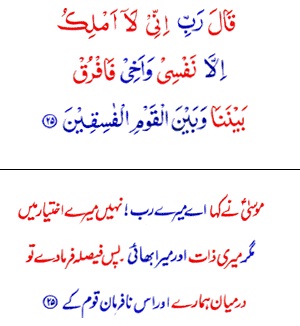 قَالَ رَبِّ اِنِّیْ لَاۤ اَمْلِكُ
اِلَّا نَفْسِیْ وَاَخِیْ فَافْرُقْ
بَیْنَنَا وَبَیْنَ الْقَوْمِ الْفٰسِقِیْنَ ﴿۲۵﴾
موسیٰؑ نے کہا اے میرے رب! نہیں میرے اختیار میں
مگر میری ذات اور میرا بھائی۔ پس فیصلہ فرما دے تو
درمیان ہمارے اور اس نافرمان قوم کے ﴿۲۵﴾